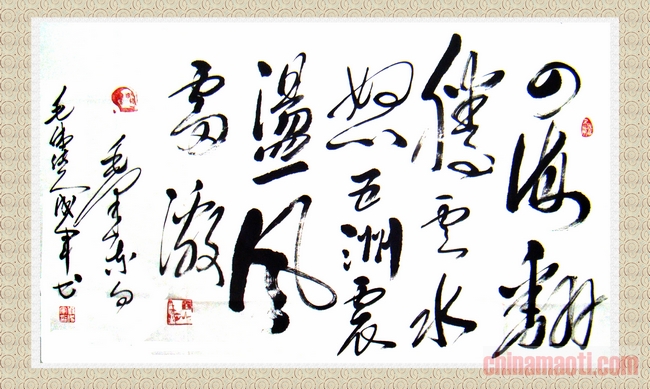 四海翻
腾云水
怒五洲震
盪风
雷激
毛泽东句
chinamaoti.com